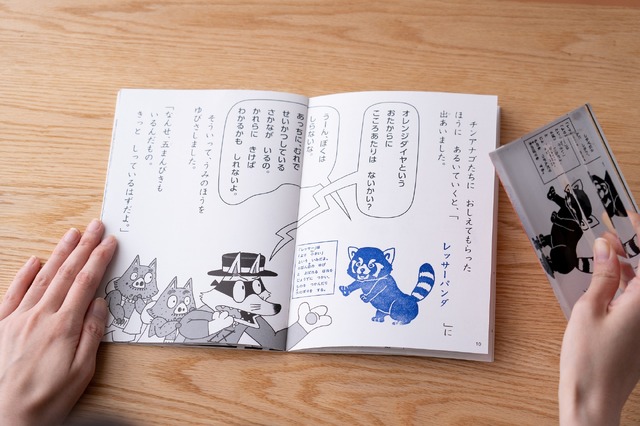 チンアナゴたちに おしえてもらった
ほうに あるいていくと、「 レッサーパンダ 」に
出あいました。
オレンジダイヤという
おたからに
こころあたりは ないかい?
うーん、ぼくは
しらないな。
あっちに、むれで
せいかつしている
さかなが いるの。
かれらに きけば
わかるかも しれないよ。
そういって、うみのほうを
ゆびさしました。
「なんせ、五まんびきも
いるんだもの。
きっと しっているはずだよ。」
13